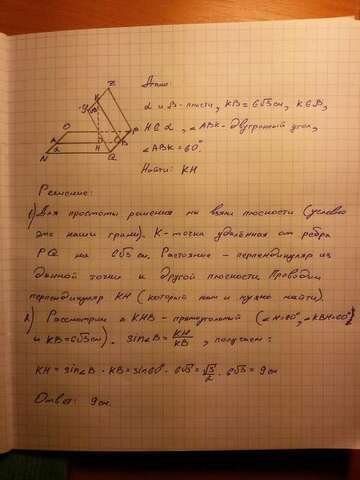 Z
K
Y
β
O
P
A
D
C
B
α
H
N
Q
Дано:
α и β - плости, KB = 6√3 см, K ∈ β,
H ∈ α, ∠ABK - двугранный угол,
∠ABK = 60°
Найти: KH
Решение:
1) Для простоты решения мы взяли плоскости (условно
это наши грани). K - точка удалённая от ребра
PQ на 6√3 см. Растояние - перпендикуляр из
данной точки к другой плоскости. Проводим
перпендикуляр KH (который нам и нужно найти).
2) Рассмотрим Δ KHB - прямоугольный (∠H=90°, ∠KBH=60°
и KB=6√3 см). sin∠B = KH/KB, получаем:
KH = sin∠B · KB = sin60° · 6√3 = √3/2 · 6√3 = 9 см
Ответ: 9 см.